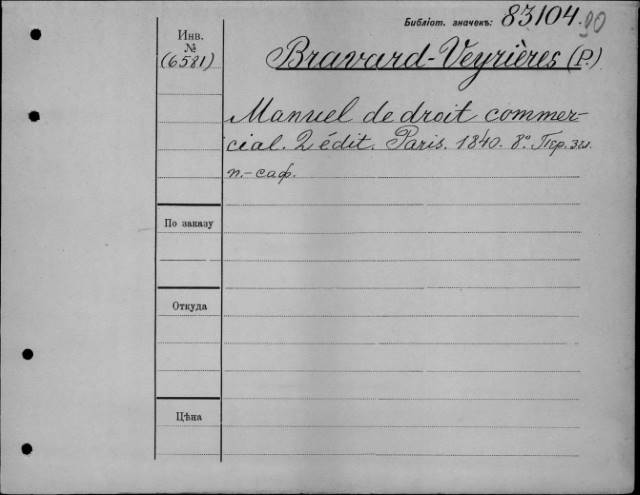 Библіот. значекъ: 83104.90
Инв.
№
(6581)
Bravard-Veyrières (P.)
Manuel de droit commer-
cial. 2 édit. Paris. 1840. 8º. Пер. зел.
п.-саф.
По заказу
Откуда
Цѣна